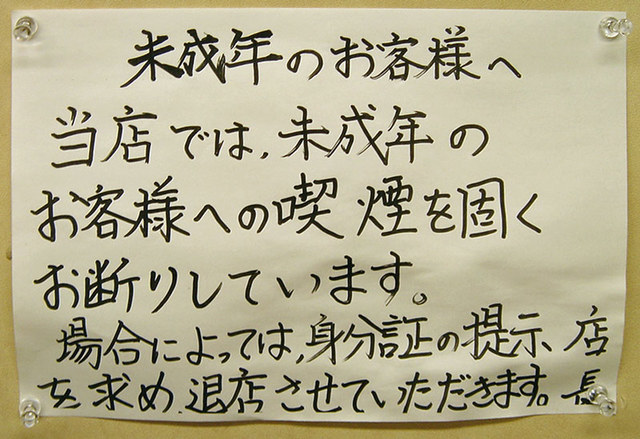 未成年のお客様へ
当店では、未成年の
お客様への喫煙を固く
お断りしています。
場合によっては、身分証の提示
を求め、退店させていただきます。
店長